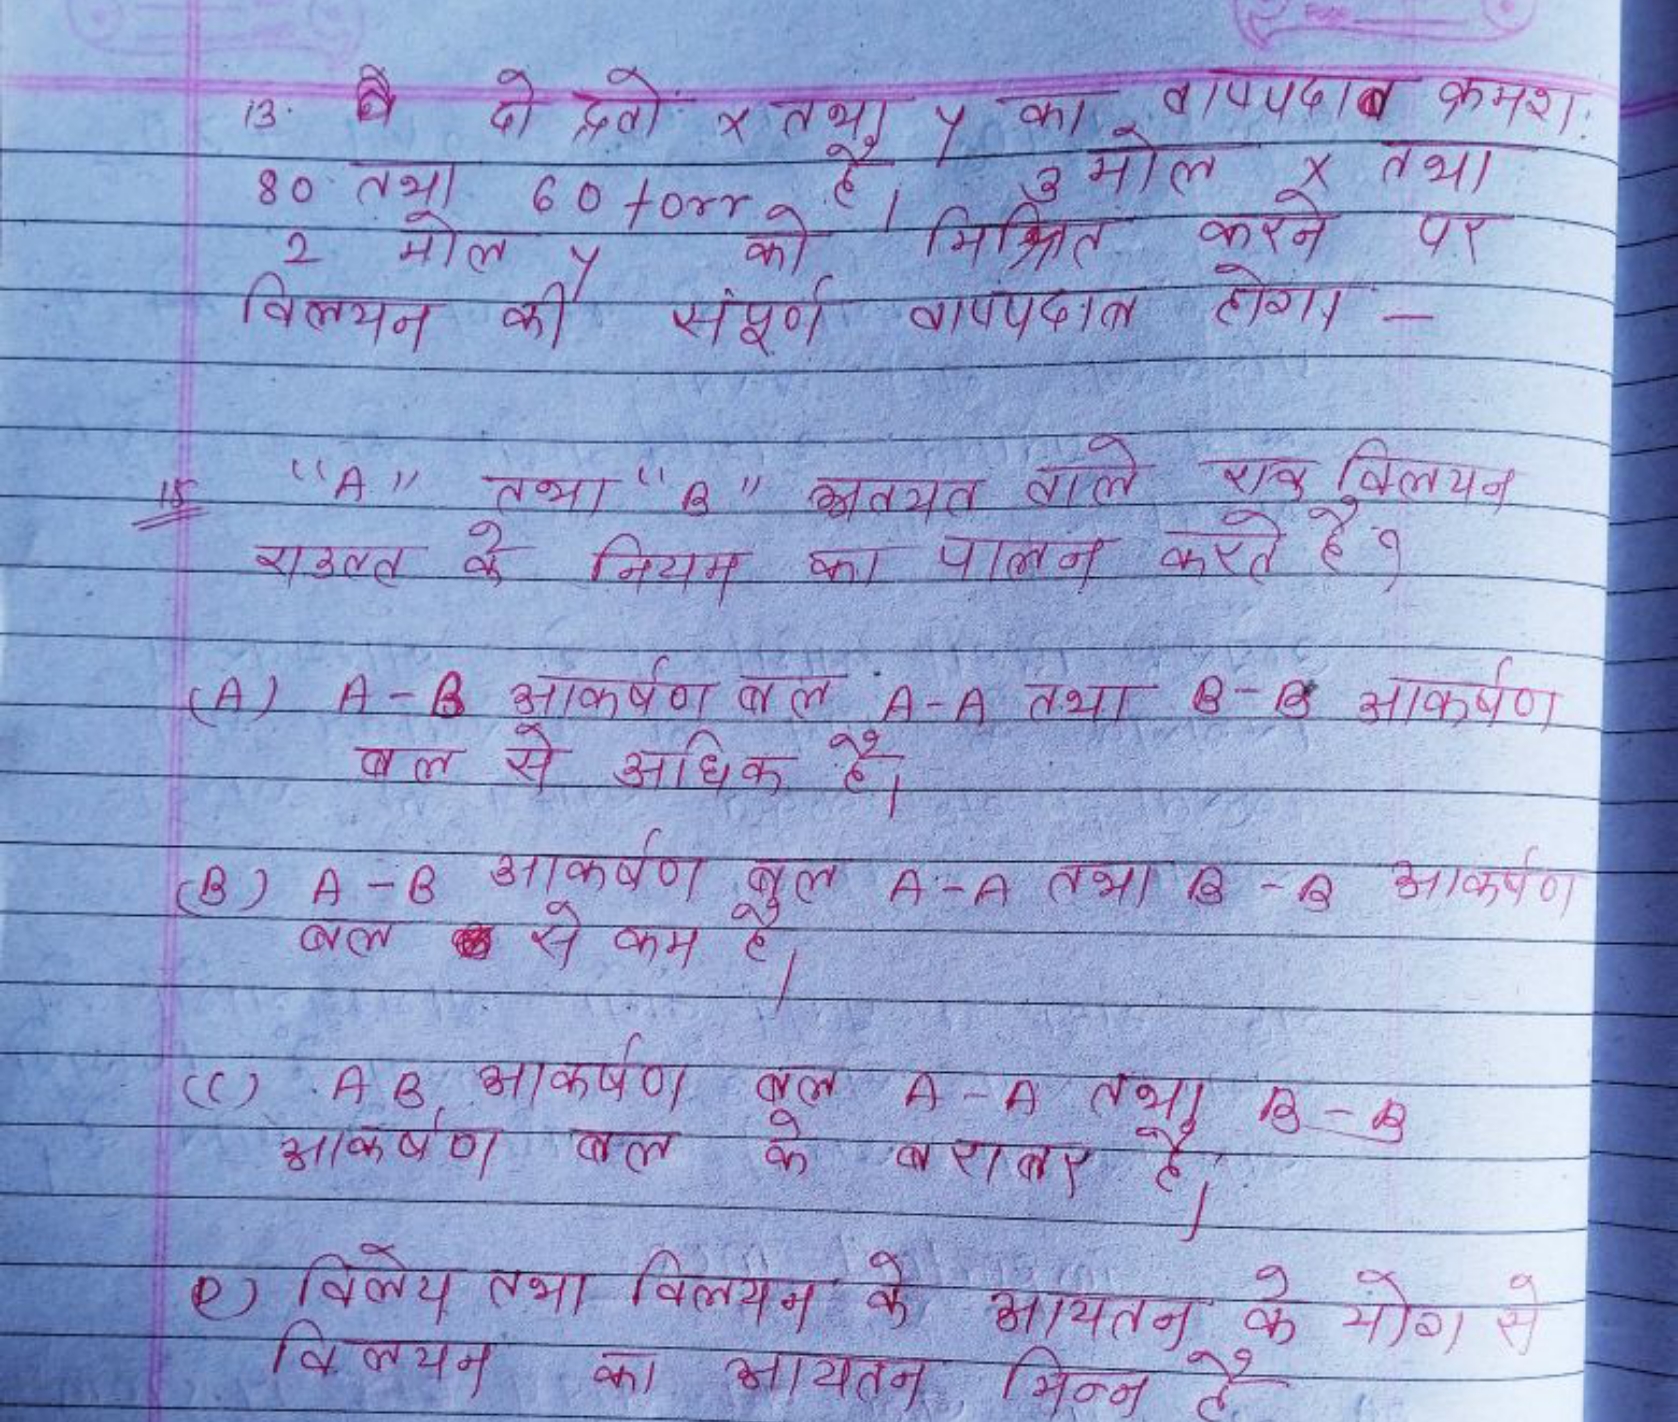 13. दो द्रवों x तथा y का वाष्पदाब क्रमश:
80 तथा 60 torr है। 3 मोल x तथा
2 मोल y को मिश्रित करने पर
विलयन की संपूर्ण वाष्पदाब होगा -
15 "A" तथा "B" अवयव वाले एक विलयन
राउल्ट के नियम का पालन करते है ?
(A) A-B आकर्षण बल A-A तथा B-B आकर्षण
बल से अधिक हैं।
(B) A-B आकर्षण बल A-A तथा B-B आकर्षण
बल से कम है।
(C) AB आकर्षण बल A-A तथा B-B
आकर्षण बल के बराबर है।
D) विलेय तथा विलयन के आयतन के योग से
विलयन का आयतन भिन्न हैं